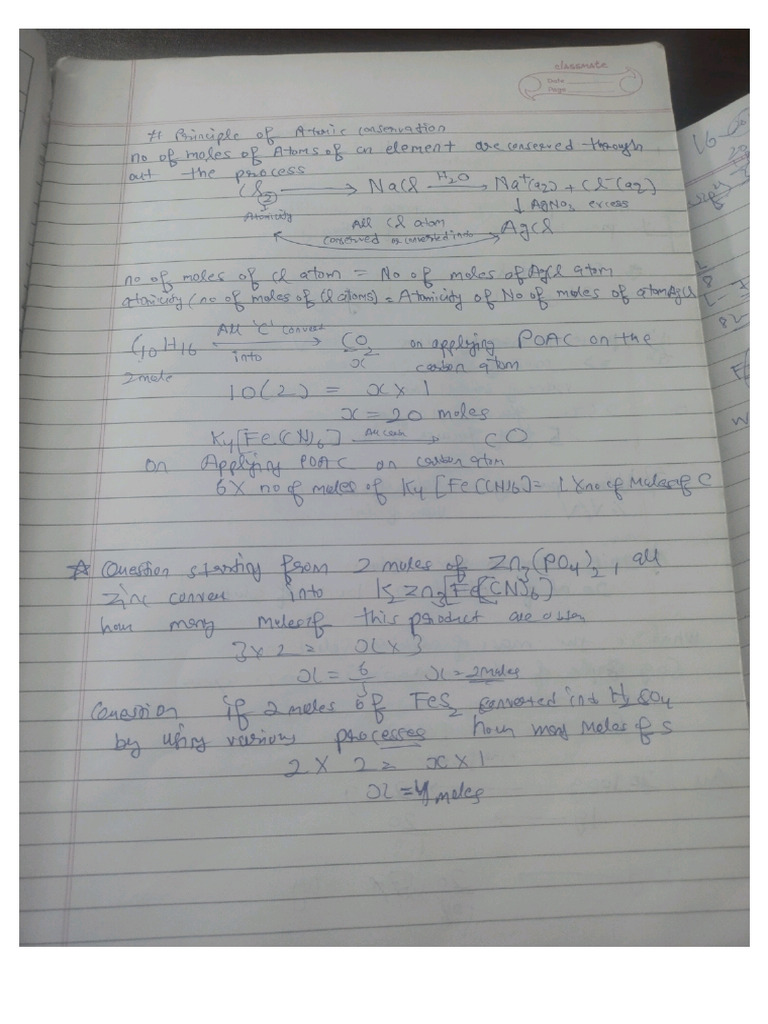 classmate
Date
Page
# Principle of Atomic conservation
no of moles of Atoms of an element are conserved through
out the process
Cl2 → NaCl H2O → Na+(aq) + Cl-(aq)
Atomicity
↓ AgNO3 excess
All Cl atom
conserved or converted into
AgCl
no of moles of cl atom = No of moles of AgCl atom
atomicity (no of moles of Cl atoms) = Atomicity of No of moles of atom AgCl
C10H16 All 'C' convert into CO2 on applying POAC on the
2mole x carbon atom
10(2) = x × 1
x = 20 moles
K4[Fe(CN)6] → CO
on Applying POAC on carbon atom
6 × no of moles of K4[Fe(CN)6] = 1 × no of Moles of C
☆ Question starting from 2 moles of Zn3(PO4)2, all
zinc conver into K2Zn3[Fe(CN)6)
how many moles of this product are
3 × 2 = x × 3
x = 6/3 x = 2 moles
Question if 2 moles of FeS2 converted into H2SO4
by using various processes how many Moles of S
2 × 2 = x × 1
x = 4 moles